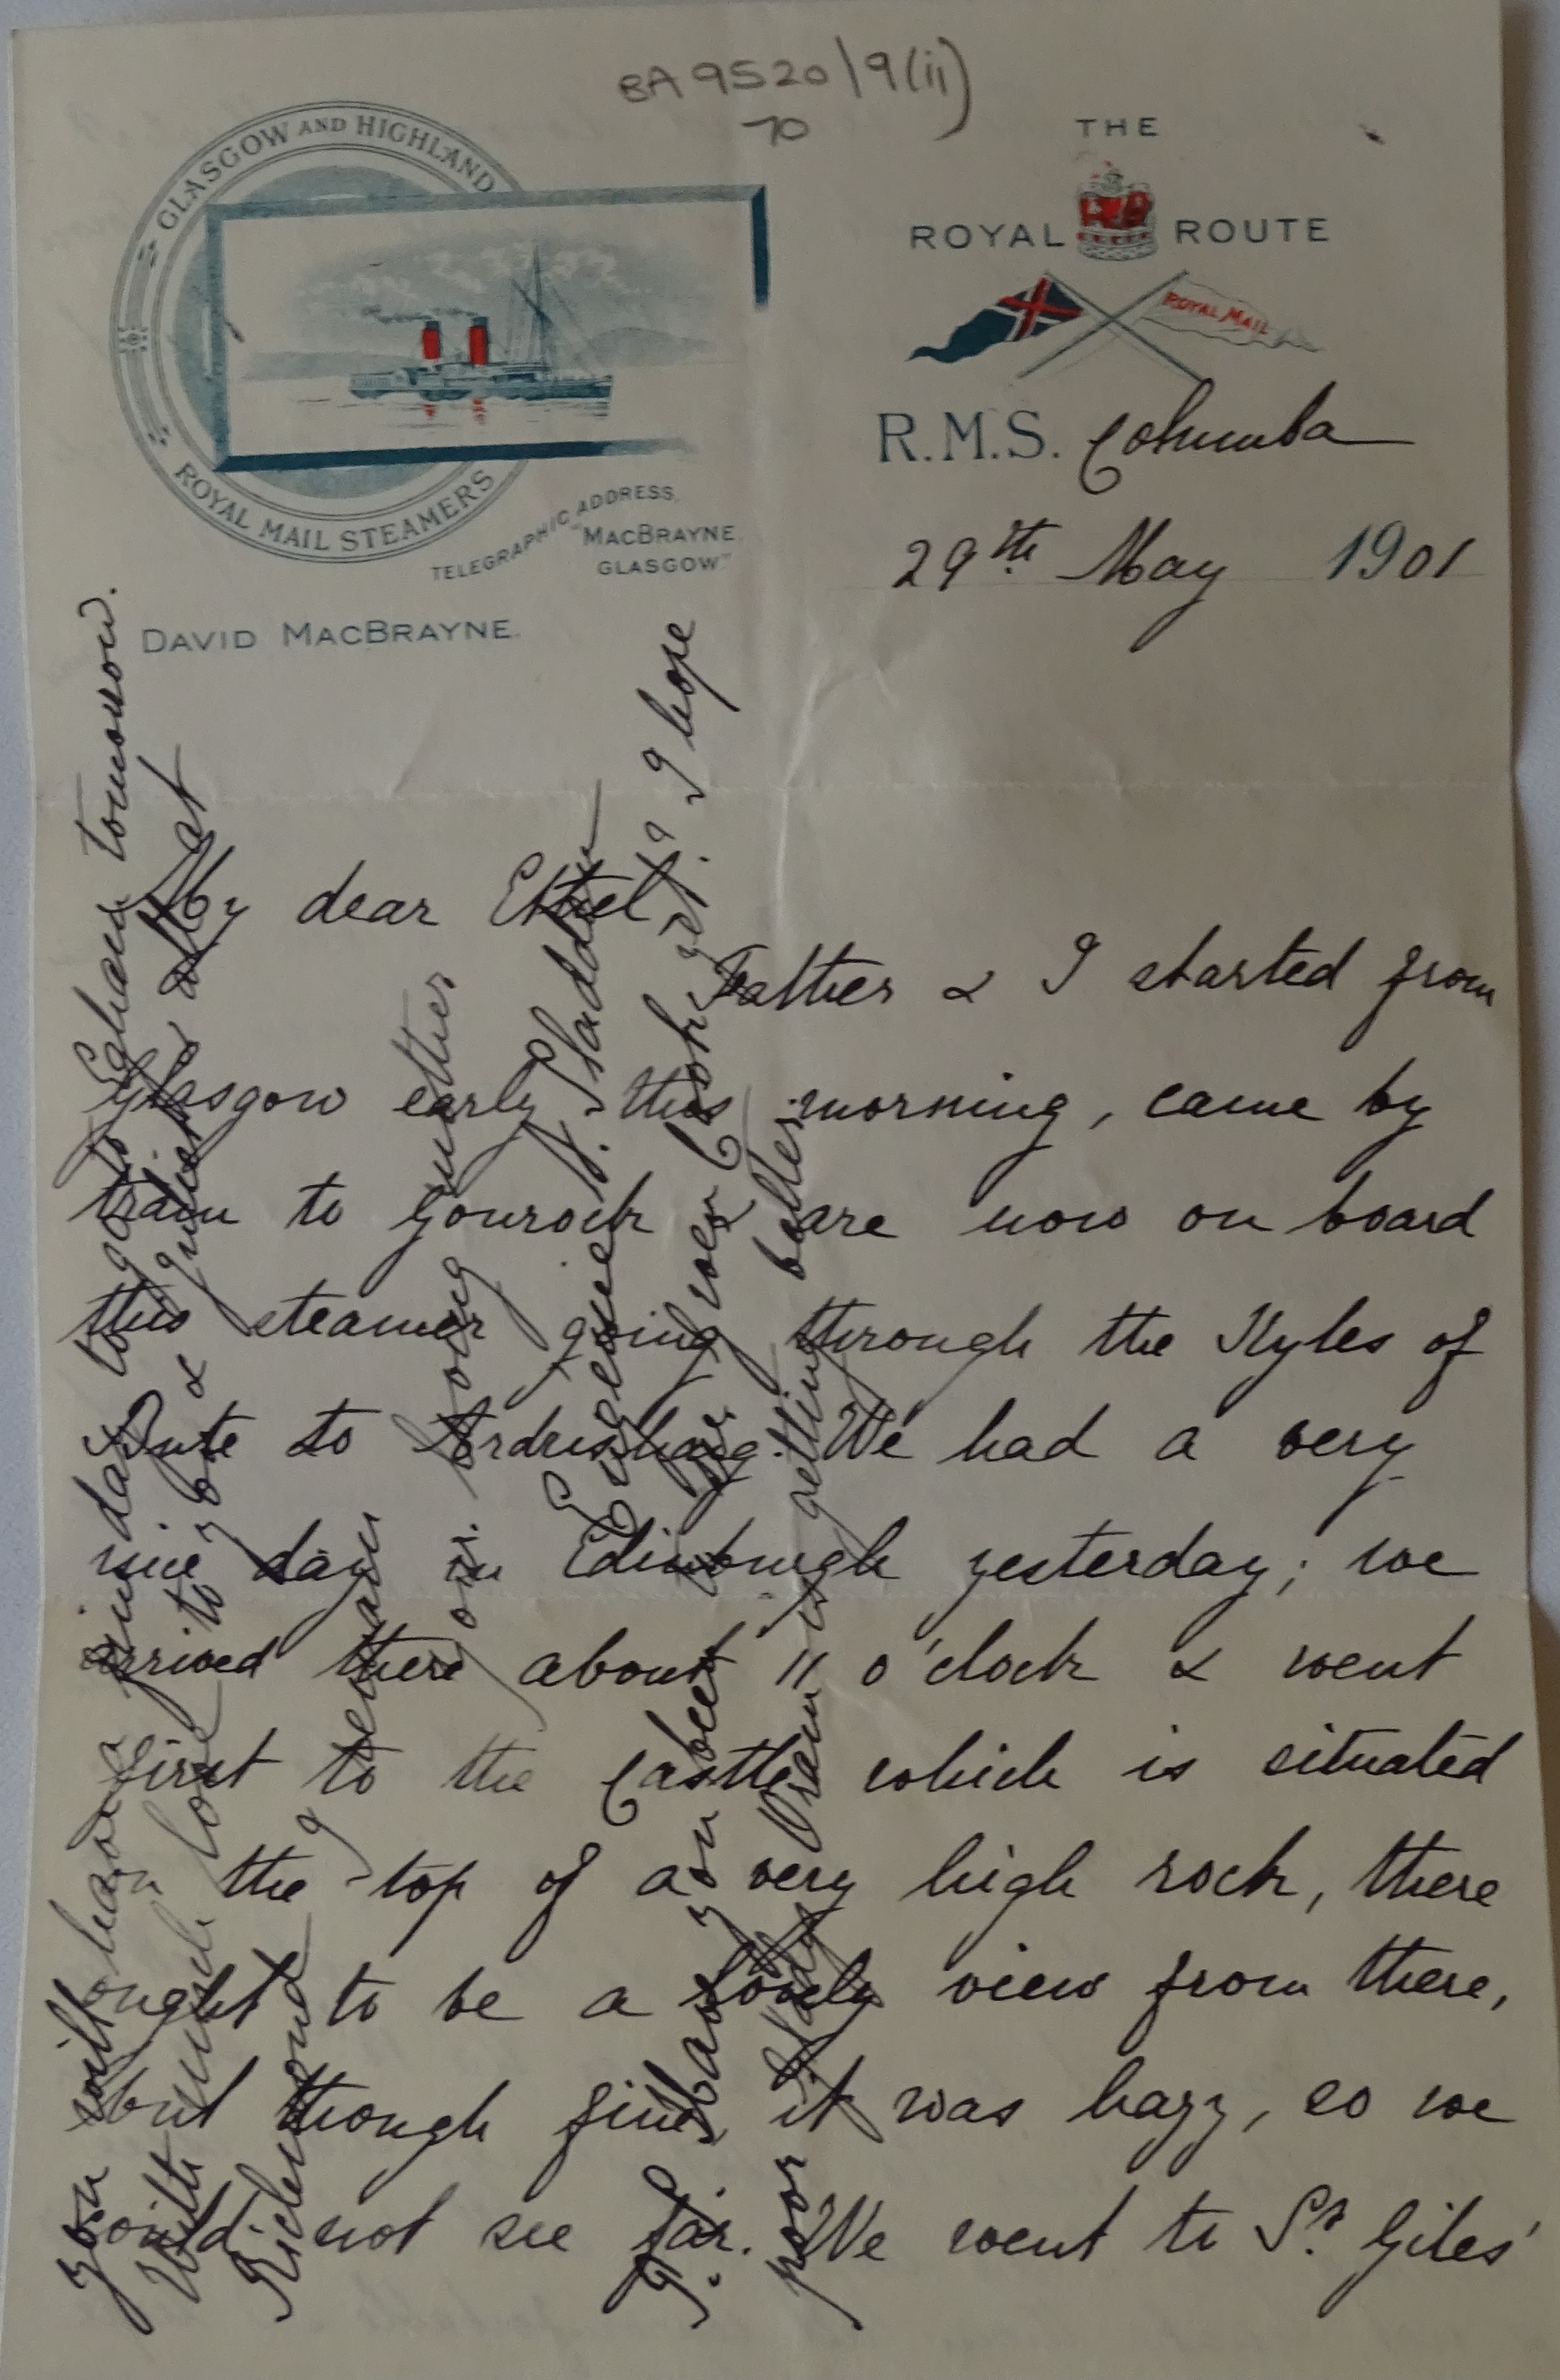 BA 9520/9(ii)
70
GLASGOW AND HIGHLAND
ROYAL MAIL STEAMERS
TELEGRAPHIC ADDRESS,
"MACBRAYNE,
GLASGOW"
DAVID MACBRAYNE.
THE
ROYAL ROUTE
ROYAL MAIL
R.M.S. Columba
29th May 1901
My dear Ethel
Father & I started from
Glasgow early this morning, came by
train to Gourock & are now on board
this steamer going through the Kyles of
Bute to Ardrishaig. We had a very
nice day in Edinburgh yesterday; we
arrived there about 11 o'clock & went
first to the Castle which is situated
on the top of a very high rock, there
ought to be a lovely view from there,
but though fine, it was hazy, so we
could not see far. We went to St. Giles'
you will have a fine day to go to Egham tomorrow.
With much love to you & Juliet & all at
Richmond
I remain
your loving mother
Eugénie P. Sladden
P.S. Have you been to see Mrs. Cook yet? I hope
poor Lady Oram is getting better.